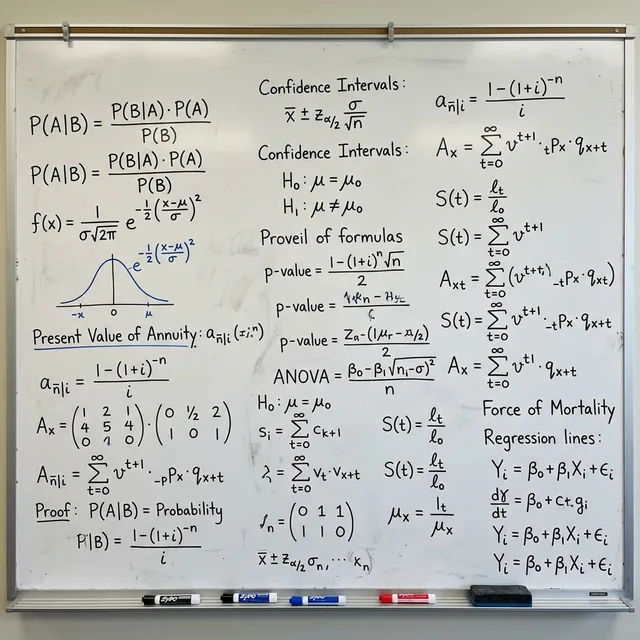 P(A|B) = P(B|A)·P(A) / P(B)
P(A|B) = P(B|A)·P(A) / P(B)
f(x) = 1 / σ√2π e^-1/2(x-μ/σ)²
e^-1/2(x-μ/σ)²
-x 0 μ
Present Value of Annuity: a_n̅|i
a_n̅|i = 1-(1+i)^-n / i
A_x = (1 2 1
4 5 4
0 1 0) · (0 ½ 2
1 0 1)
A_n̅|i = ∑_{t=0}^∞ v^t+1 · _-p P_x · q_x+t
Proof: P(A|B) = Probability
P(B) = 1-(1+i)^-n / i
Confidence Intervals:
x̄ ± z_α/2 σ/√n
Confidence Intervals:
H₀: μ = μ₀
H₁: μ ≠ μ₀
Proveil of formulas
p-value = 1-(1+i)^n √n / 2
p-value =
p-value =
ANOVA = β₀-β₁√(n_i-σ)² / n
H₀: μ = μ₀
s_i = ∑_{t=0}^∞ c_k+1
S(t) = ℓ_t / ℓ_0
= ∑_{t=0}^∞ v_t · v_x+t
S(t) = ℓ_t / ℓ_0
= (0 1 1
1 1 0)
μ_x = l_t / μ_x
x̄ ± z_α/2 σ_n, ⋯ κ_n
a_n̅|i = 1-(1+i)^-n / i
A_x = ∑_{t=0}^∞ v^t+1 · _t P_x · q_x+t
S(t) = ℓ_t / ℓ_0
S(t) = ∑_{t=0}^∞ v^t+1
A_xt = ∑_{t=0}^∞ (v^t+1) _-t P_x · q_xt)
S(t) = ∑_{t=0}^∞ v^t+1 · _-t P_x · q_x+t
A_x = ∑_{t=0}^∞ v^t1 · q_x+t
Force of Mortality
Regression lines:
Y_i = β₀ + β₁X_i + ε_i
dγ/dt = β₀ + c_t · g_i
Y_i = β₀ + β₁X_i + ε_i
Y_i = β₀ + β₁X_i + ε_i